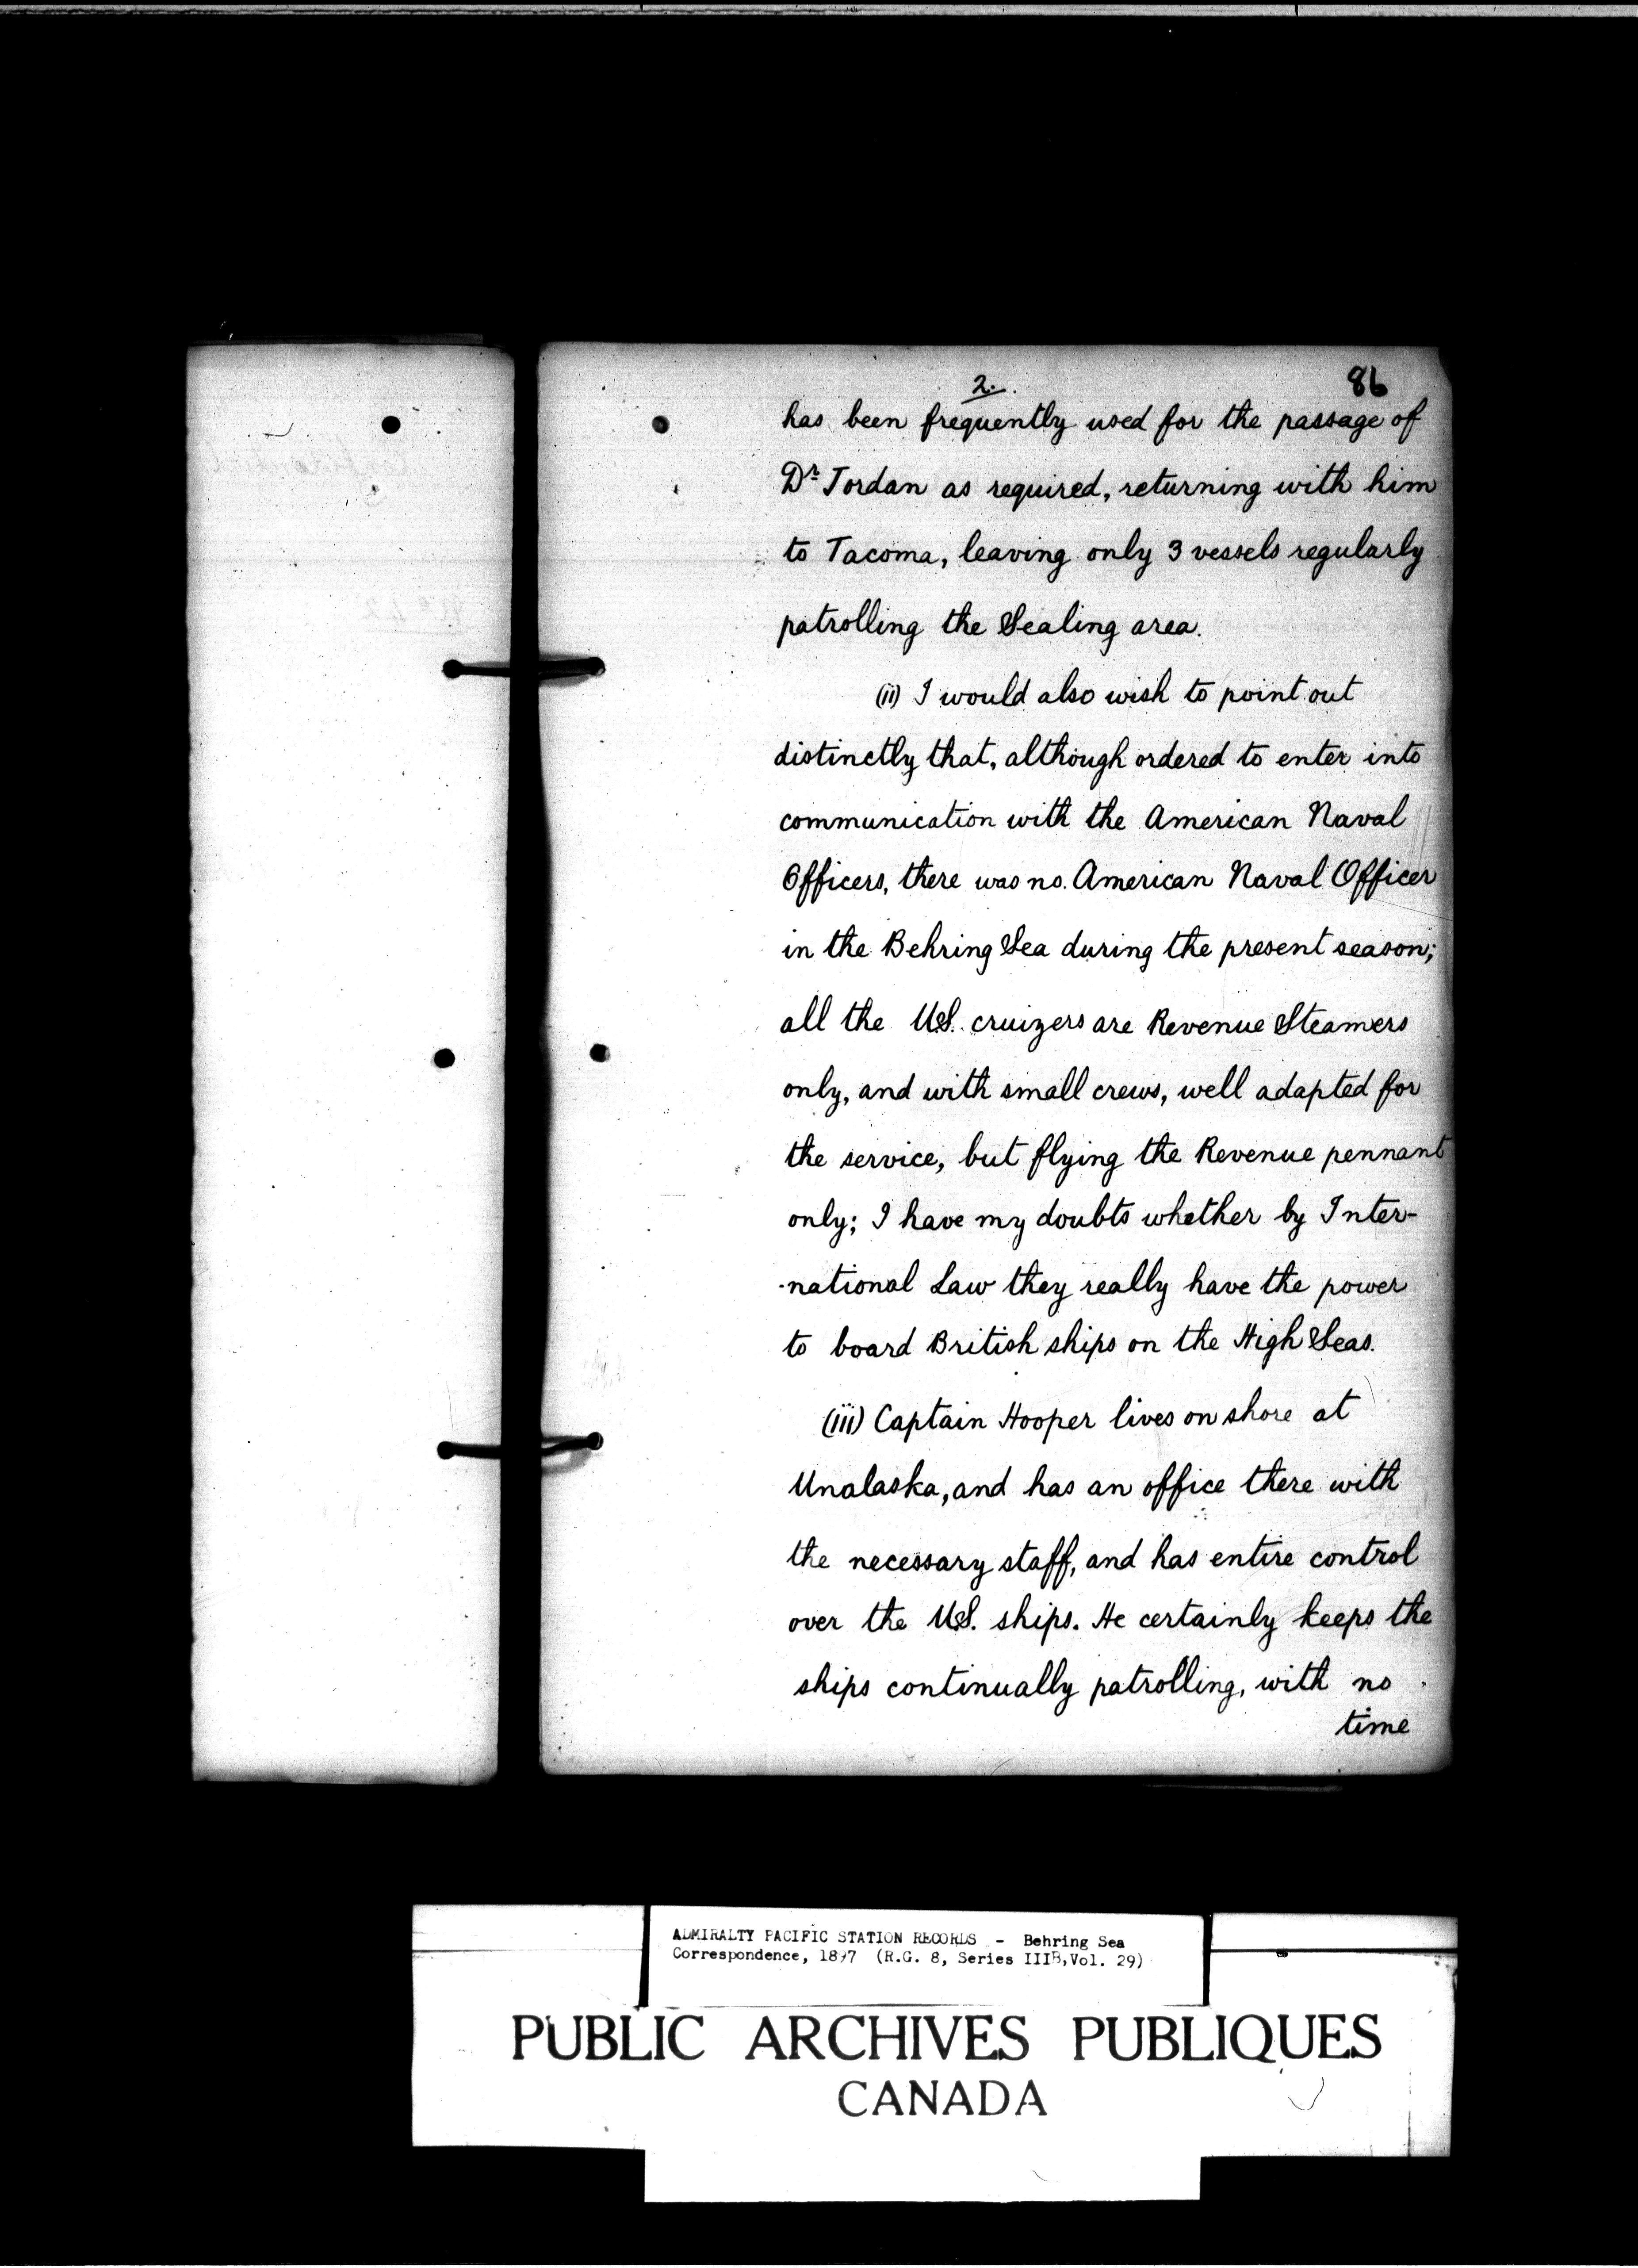 2.
86
has been frequently used for the passage of
Dr Jordan as required, returning with him
to Tacoma, leaving only 3 vessels regularly
patrolling the Sealing area.
(ii) I would also wish to point out
distinctly that, although ordered to enter into
communication with the American Naval
Officers, there was no American Naval Officer
in the Behring Sea during the present season;
all the U.S. cruizers are Revenue Steamers
only, and with small crews, well adapted for
the service, but flying the Revenue pennant
only; I have my doubts whether by Inter-
-national Law they really have the power
to board British ships on the High Seas.
(iii) Captain Hooper lives on shore at
Unalaska, and has an office there with
the necessary staff, and has entire control
over the U.S. ships. He certainly keeps the
ships continually patrolling, with no
time
ADMIRALTY PACIFIC STATION RECORDS - Behring Sea
Correspondence, 1897 (R.G. 8, Series IIIB, Vol. 29)
PUBLIC ARCHIVES PUBLIQUES
CANADA